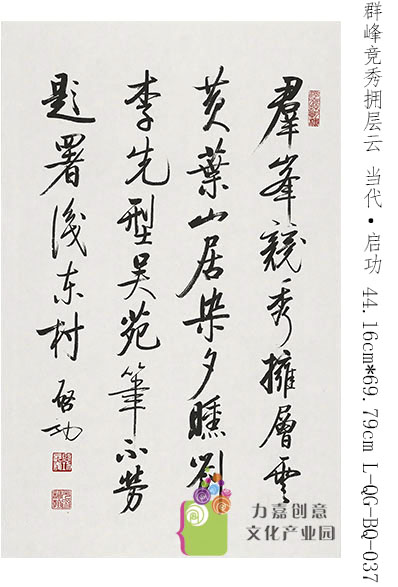 群峰竟秀拥层云 当代·启功 44.16cm*69.79cm L-QG-BQ-037
羣峯競秀擁層雲
黄葉山居染夕曛劉
李先型吴苑筆不劳
題署东村
啓功
力嘉创意
文化产业园